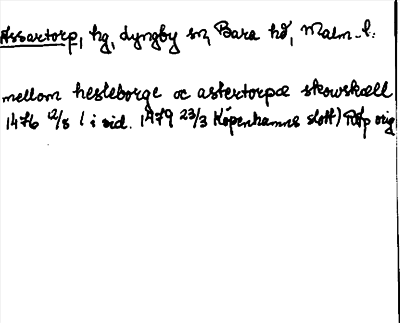 Assartorp, hg, Lyngby sn, Bara hd, Malm. l.
mellom hesleborge oc astertorpæ skowskæll
1476 12/8 ( i vid. 1479 23/3 Köpenhamns slott) Rep orig